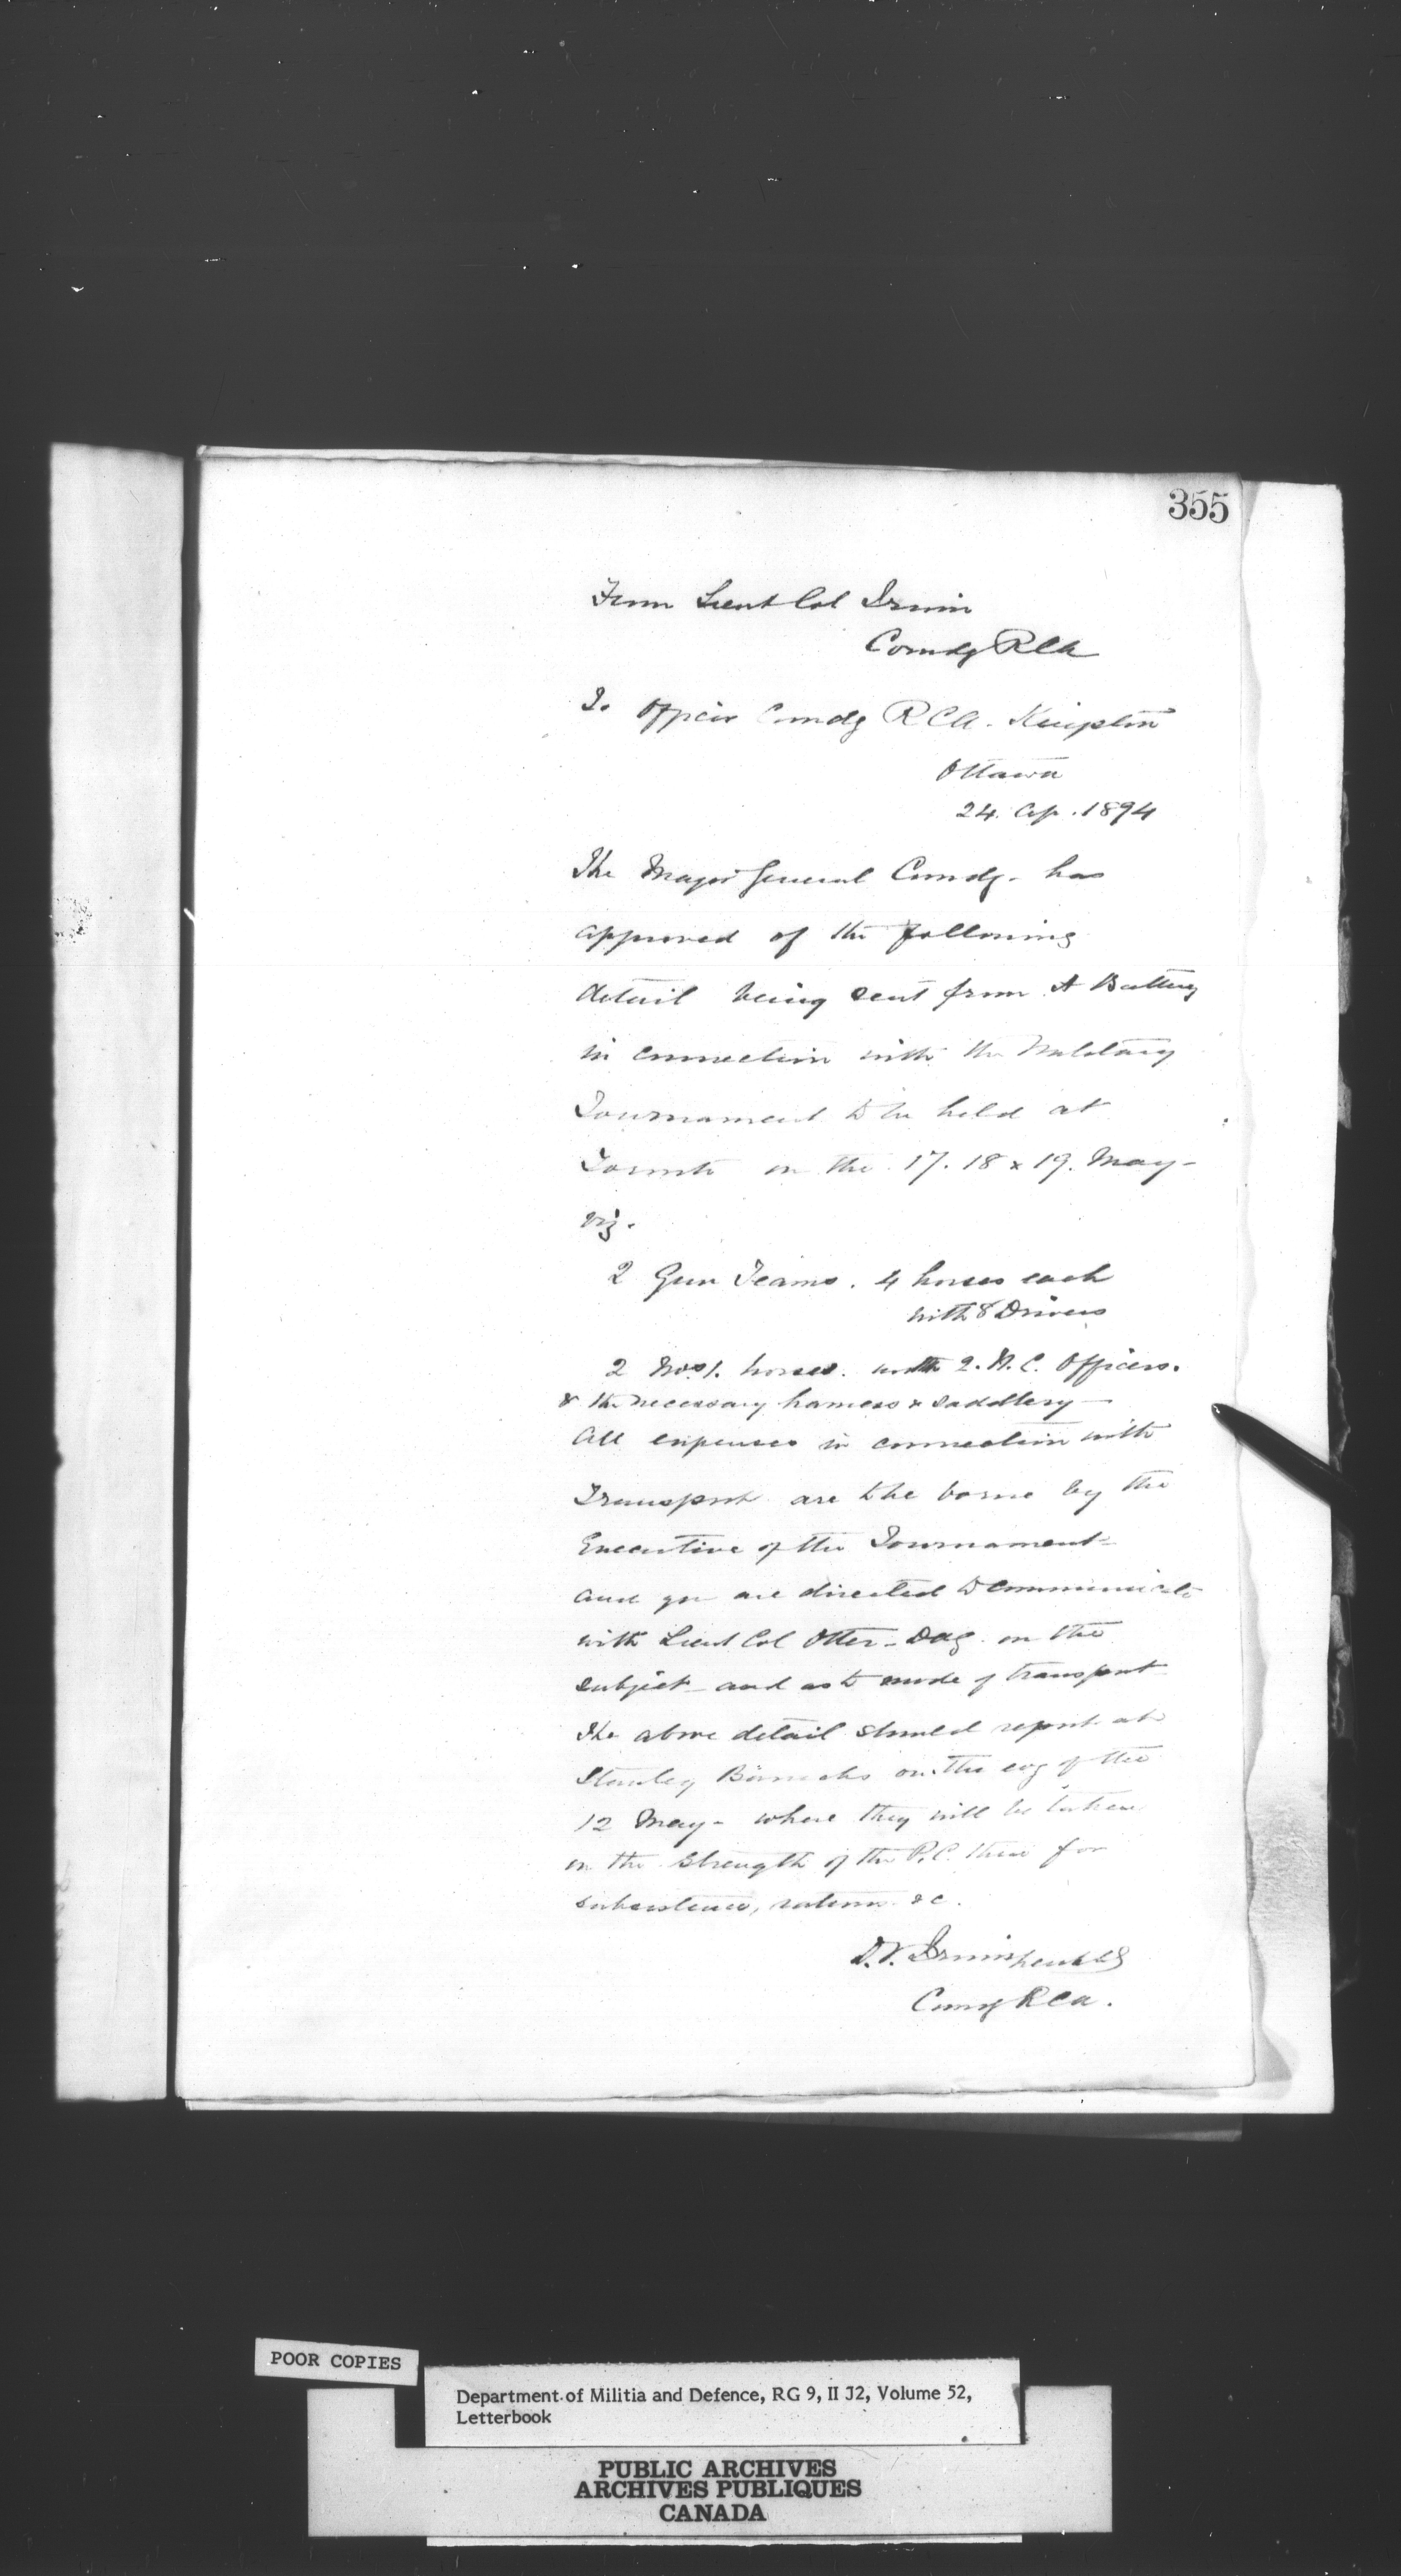 355
From Lieut Col Irwin
Comdg RCA
To Officer Comdg RCA. Kingston
Ottawa
24. Ap. 1894
The Major General Comdg. has
approved of the following
detail being sent from A Battery
in connection with the Military
Tournament to be held at
Toronto on the 17. 18 & 19. May -
viz.
2 Gun Teams. 4 horses each
with 8 Drivers
2 Nos 1. horses. with 2. N. C. Officers.
& the necessary harness & saddlery -
All expenses in connection with
Transport are to be borne by the
Executive of the Tournament -
and you are directed to communicate
with Lieut Col Otter - DAG. on the
subject - and as to mode of transport
The above detail should report at
Stanley Barracks on the evg of the
12 May - where they will be taken
on the strength of the P.C. there for
subsistence, rations &c.
D.T. Irwin Lieut Col
Comg RCA.
POOR COPIES
Department of Militia and Defence, RG 9, II J2, Volume 52,
Letterbook
PUBLIC ARCHIVES
ARCHIVES PUBLIQUES
CANADA